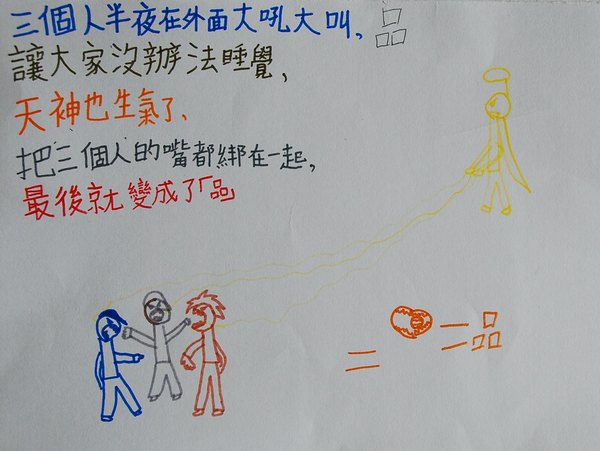 三個人半夜在外面大吼大叫、品
讓大家沒辦法睡覺，
天神也生氣了、
把三個人的嘴都綁在一起，
最後就變成了「品」
二 二品